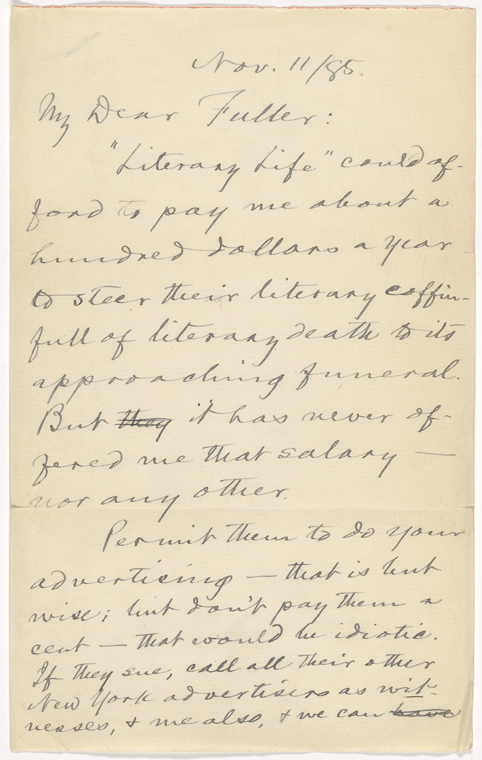 Nov. 11/85.
My Dear Fuller:
"Literary Life" could af-
ford to pay me about a
hundred dollars a year
to steer their literary coffin-
full of literary death to its
approaching funeral.
But they it has never of-
fered me that salary —
nor any other.
Permit them to do your
advertising — that is but
wise; but don't pay them a
cent — that would be idiotic.
If they sue, call all their other
New York advertisers as wit-
nesses, & me also, & we can have